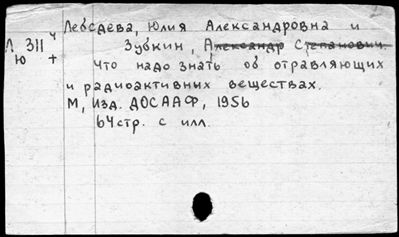 Лебедева, Юлия Александровна и
Л 311 ч
Зубкин, Александр Степанович.
ю +
Что надо знать об отравляющих
и радиоактивных веществах.
М, Изд. ДОСААФ, 1956
64 стр. с илл.